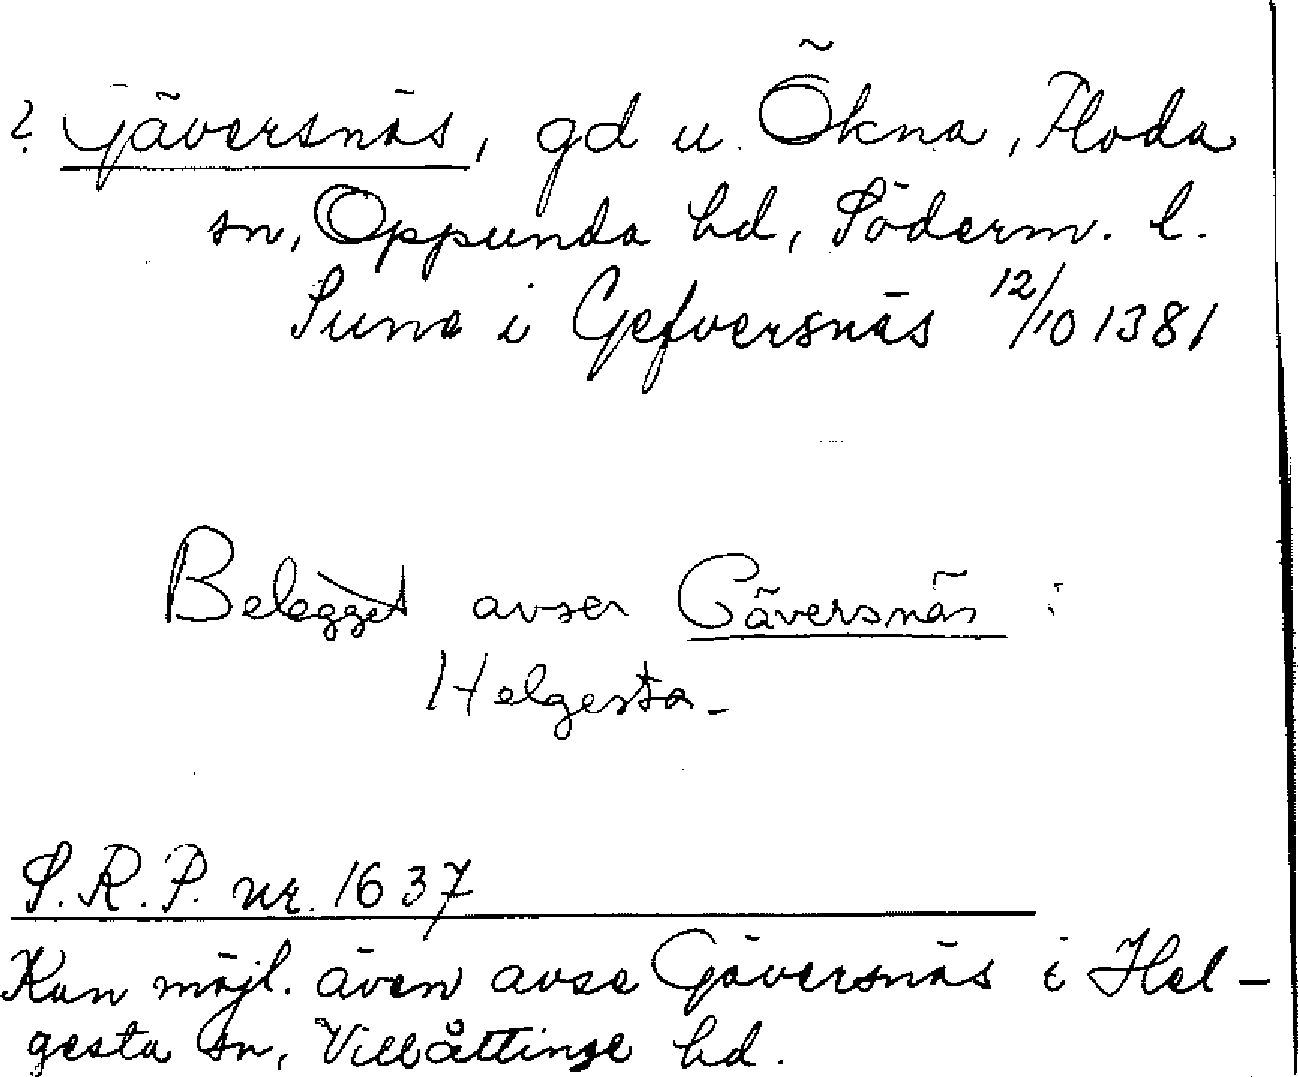 ? Gäversnäs, gd u. Ökna, Floda
sn, Oppunda hd, Söderm. l.
Sune i Gefversnäs 12/10 1381
Belägget avser Gäversnäs i
Helgesta.
S.R.P. nr. 1637
Kan möjl. även avse Gäversnäs i Hel-
gesta sn, Villåttinge hd.